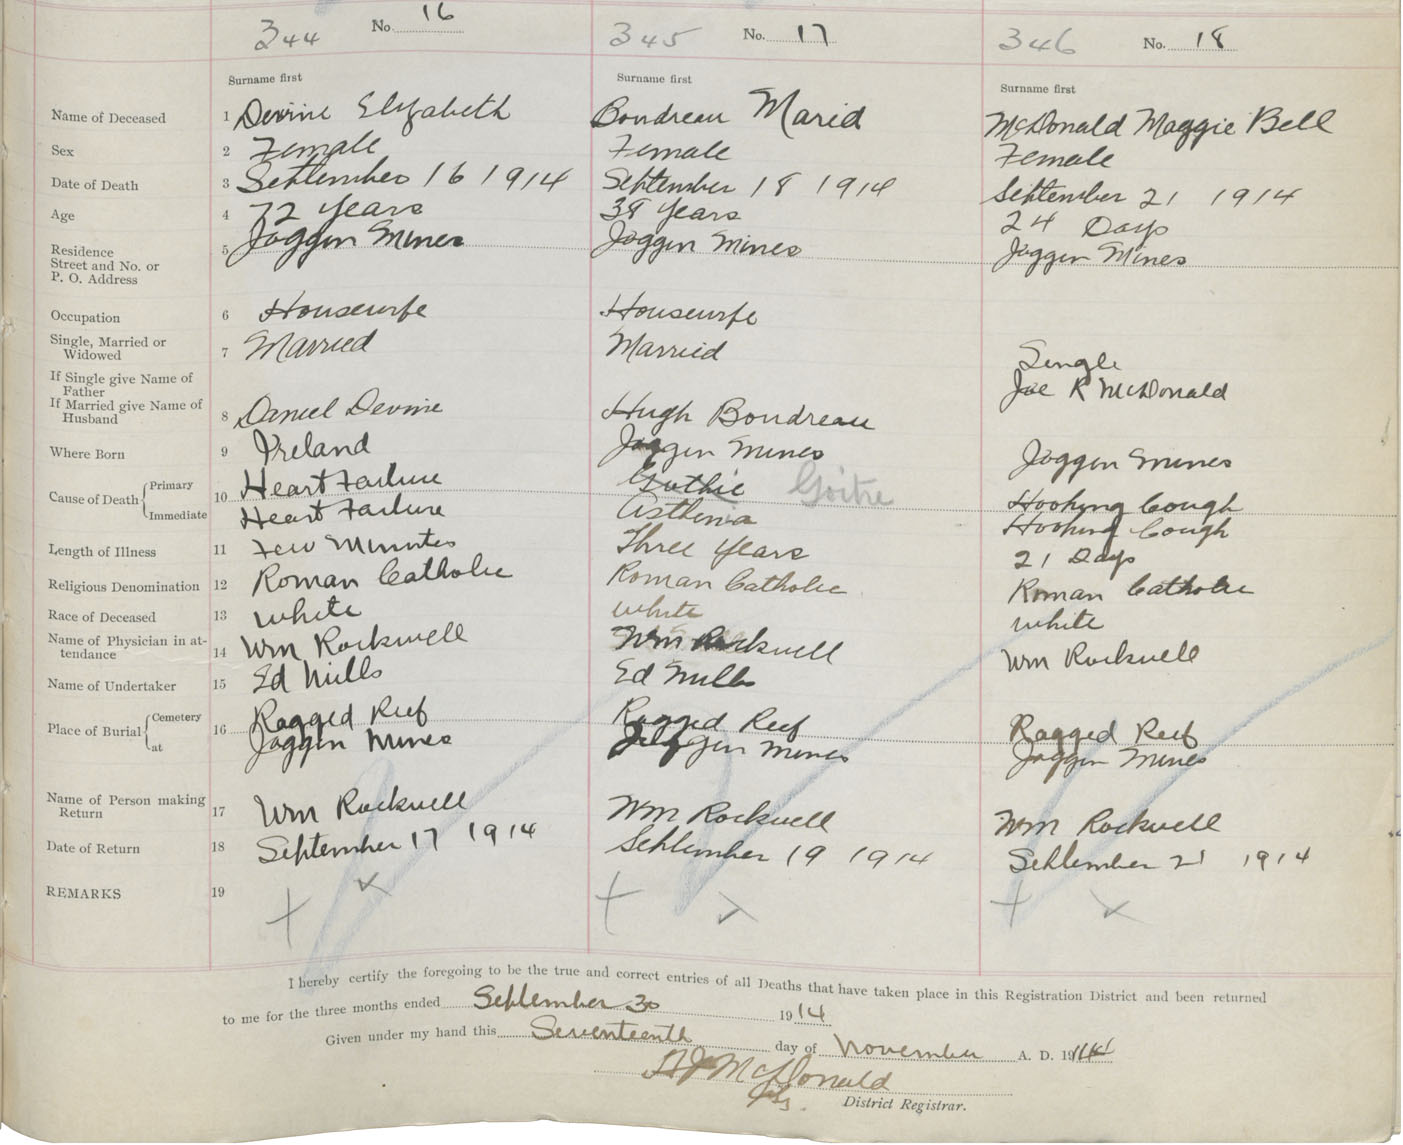 344 No. 16 345 No. 17 346 No. 18
Surname first Surname first Surname first
Name of Deceased 1 Devine Elizabeth Boudreau Maried McDonald Maggie Bell
Sex 2 Female Female Female
Date of Death 3 September 16 1914 September 18 1914 September 21 1914
Age 4 72 Years 38 Years 24 Days
Residence
Street and No. or
P. O. Address 5 Joggin Mines Joggin Mines Joggin Mines
Occupation 6 Housewife Housewife
Single, Married or
Widowed 7 Married Married Single
If Single give Name of
Father Joe R McDonald
If Married give Name of
Husband 8 Daniel Devine Hugh Boudreau
Where Born 9 Ireland Joggin Mines Joggin Mines
Cause of Death Primary 10 Heart Failure Guthie Goitre Hooking Cough
Immediate Heart Failure Asthma Hooking Cough
Length of Illness 11 Few Minutes Three Years 21 Days
Religious Denomination 12 Roman Catholic Roman Catholic Roman Catholic
Race of Deceased 13 White White White
Name of Physician in at-
tendance 14 Wm Rockwell Wm Rockwell Wm Rockwell
Name of Undertaker 15 Ed Mills Ed Mills
Place of Burial Cemetery 16 Ragged Reef Ragged Reef Ragged Reef
at Joggin Mines Joggin Mines Joggin Mines
Name of Person making
Return 17 Wm Rockwell Wm Rockwell Wm Rockwell
Date of Return 18 September 17 1914 September 19 1914 September 21 1914
REMARKS 19
I hereby certify the foregoing to be the true and correct entries of all Deaths that have taken place in this Registration District and been returned
to me for the three months ended September 30 1914
Given under my hand this Seventeenth day of November A. D. 1914
McDonald
District Registrar.